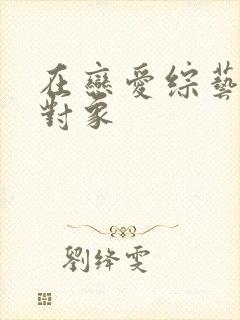 在戀愛综藝
對象
劉绛雯